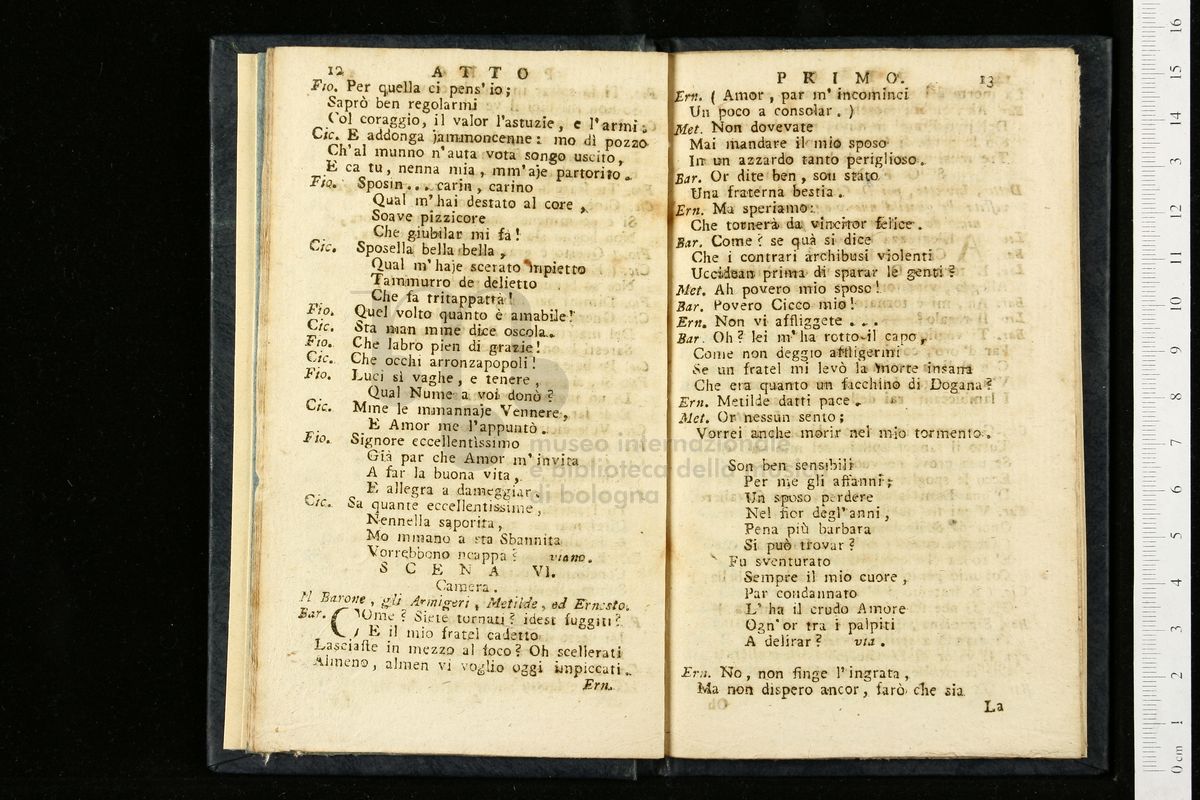 12 ATTO
Fio. Per quella ci pens' io;
Saprò ben regolarmi
Col coraggio, il valor l'astuzie, e l'armi.
Cic. E addonga jammoncenne: mo di pozzo
Ch'al munno n'auta vota songo uscito,
E ca tu, nenna mia, mm'aje partorito.
Fio. Sposin... carin, carino
Qual m'hai destato al core,
Soave pizzicore
Che giubilar mi fa!
Cic. Sposella bella bella,
Qual m'haje scerato mpietto
Tammurro de delietto
Che fa tritappatta!
Fio. Quel volto quanto è amabile!
Cic. Sta man mme dice oscola.
Fio. Che labro pien di grazie!
Cic. Che occhi arronzapopoli!
Fio. Luci sì vaghe, e tenere,
Qual Nume a voi donò?
Cic. Mme le mmannaje Vennere,
E Amor me l'appuntò.
Fio. Signore eccellentissimo
Già par che Amor m'invita
A far la buona vita,
E allegra a dameggiar.
Cic. Sa quante eccellentissime,
Nennella saporita,
Mo mmano a sta Sbannita
Vorrebbono ncappà? viano.
SCENA VI.
Camera.
Il Barone, gli Armigeri, Metilde, ed Ernesto.
Bar. COme? Siete tornati? idest fuggiti?
E il mio fratel cadetto
Lasciaste in mezzo al foco? Oh scellerati
Almeno, almen vi voglio oggi impiccati.
Ern.
PRIMO. 13
Ern. (Amor, par m'incominci
Un poco a consolar.)
Met. Non dovevate
Mai mandare il mio sposo
In un azzardo tanto periglioso.
Bar. Or dite ben, son stato
Una fraterna bestia.
Ern. Ma speriamo:
Che tornerà da vincitor felice.
Bar. Come? se quà si dice
Che i contrari archibusi violenti
Uccidean prima di sparar le genti?
Met. Ah povero mio sposo!
Bar. Povero Cicco mio!
Ern. Non vi affliggete...
Bar. Oh? lei m'ha rotto il capo,
Come non deggio affligermi
Se un fratel mi levò la morte insana
Che era quanto un facchino di Dogana?
Ern. Metilde datti pace.
Met. Or nessun sento;
Vorrei anche morir nel mio tormento.
Son ben sensibili
Per me gli affanni;
Un sposo perdere
Nel fior degl'anni,
Pena più barbara
Si può trovar?
Fu sventurato
Sempre il mio cuore,
Par condannato
L'ha il crudo Amore
Ogn'or tra i palpiti
A delirar? via.
Ern. No, non finge l'ingrata,
Ma non dispero ancor, farò che sia
La
museo internazionale
e biblioteca della musica
di bologna
0 cm 1 2 3 4 5 6 7 8 9 10 11 12 13 14 15 16